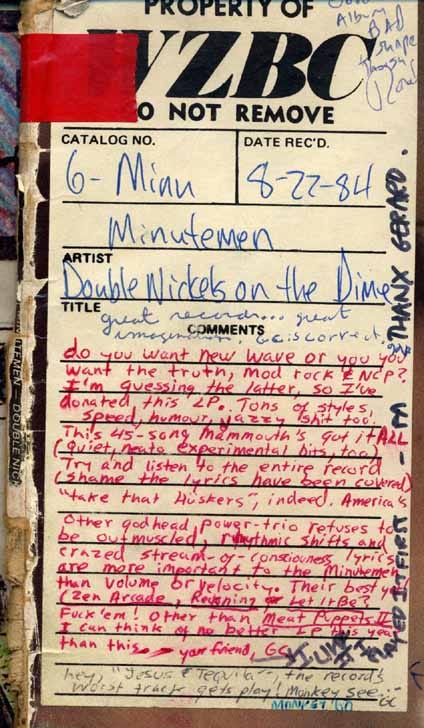 PROPERTY OF
WZBC
O NOT REMOVE
Album
BAD
shape
though
CATALOG NO.
6- Minu
DATE REC'D.
8-22-84
Minutemen
ARTIST
Double Nickels on the Dime
TITLE
great record... great
COMMENTS
imagination. GC is correct.
do you want new wave or you you
want the truth, Mod rock & NCP?
I'm guessing the latter, so I've
donated this LP. Tons of styles,
speed, humour, jazzy shit too.
This 45-song mammouth's got it ALL
(quiet, neato experimental bits, too)
Try and listen to the entire record
(shame the lyrics have been covered)
"take that Hüskers", indeed. America's
Other godhead, power-trio refuses to
be outmuscled, rhythmic shifts and
crazed stream-of-consciousness lyrics
are more important to the Minutemen
than volume or velocity. Their best yet
(Zen Arcade, Reckoning or Let it Be?
Fuck 'em! Other than Meat Puppets II
I can think of no better LP this year
than this your friend, GC
I LIKE IT
hey, "Jesus & Tequila", the record's
worst track gets play! Monkey see...
GC
MONKEY DO
I PLAYED IT FIRST - PM
THANX GERARD.
MINUTEMEN - DOUBLE NICK